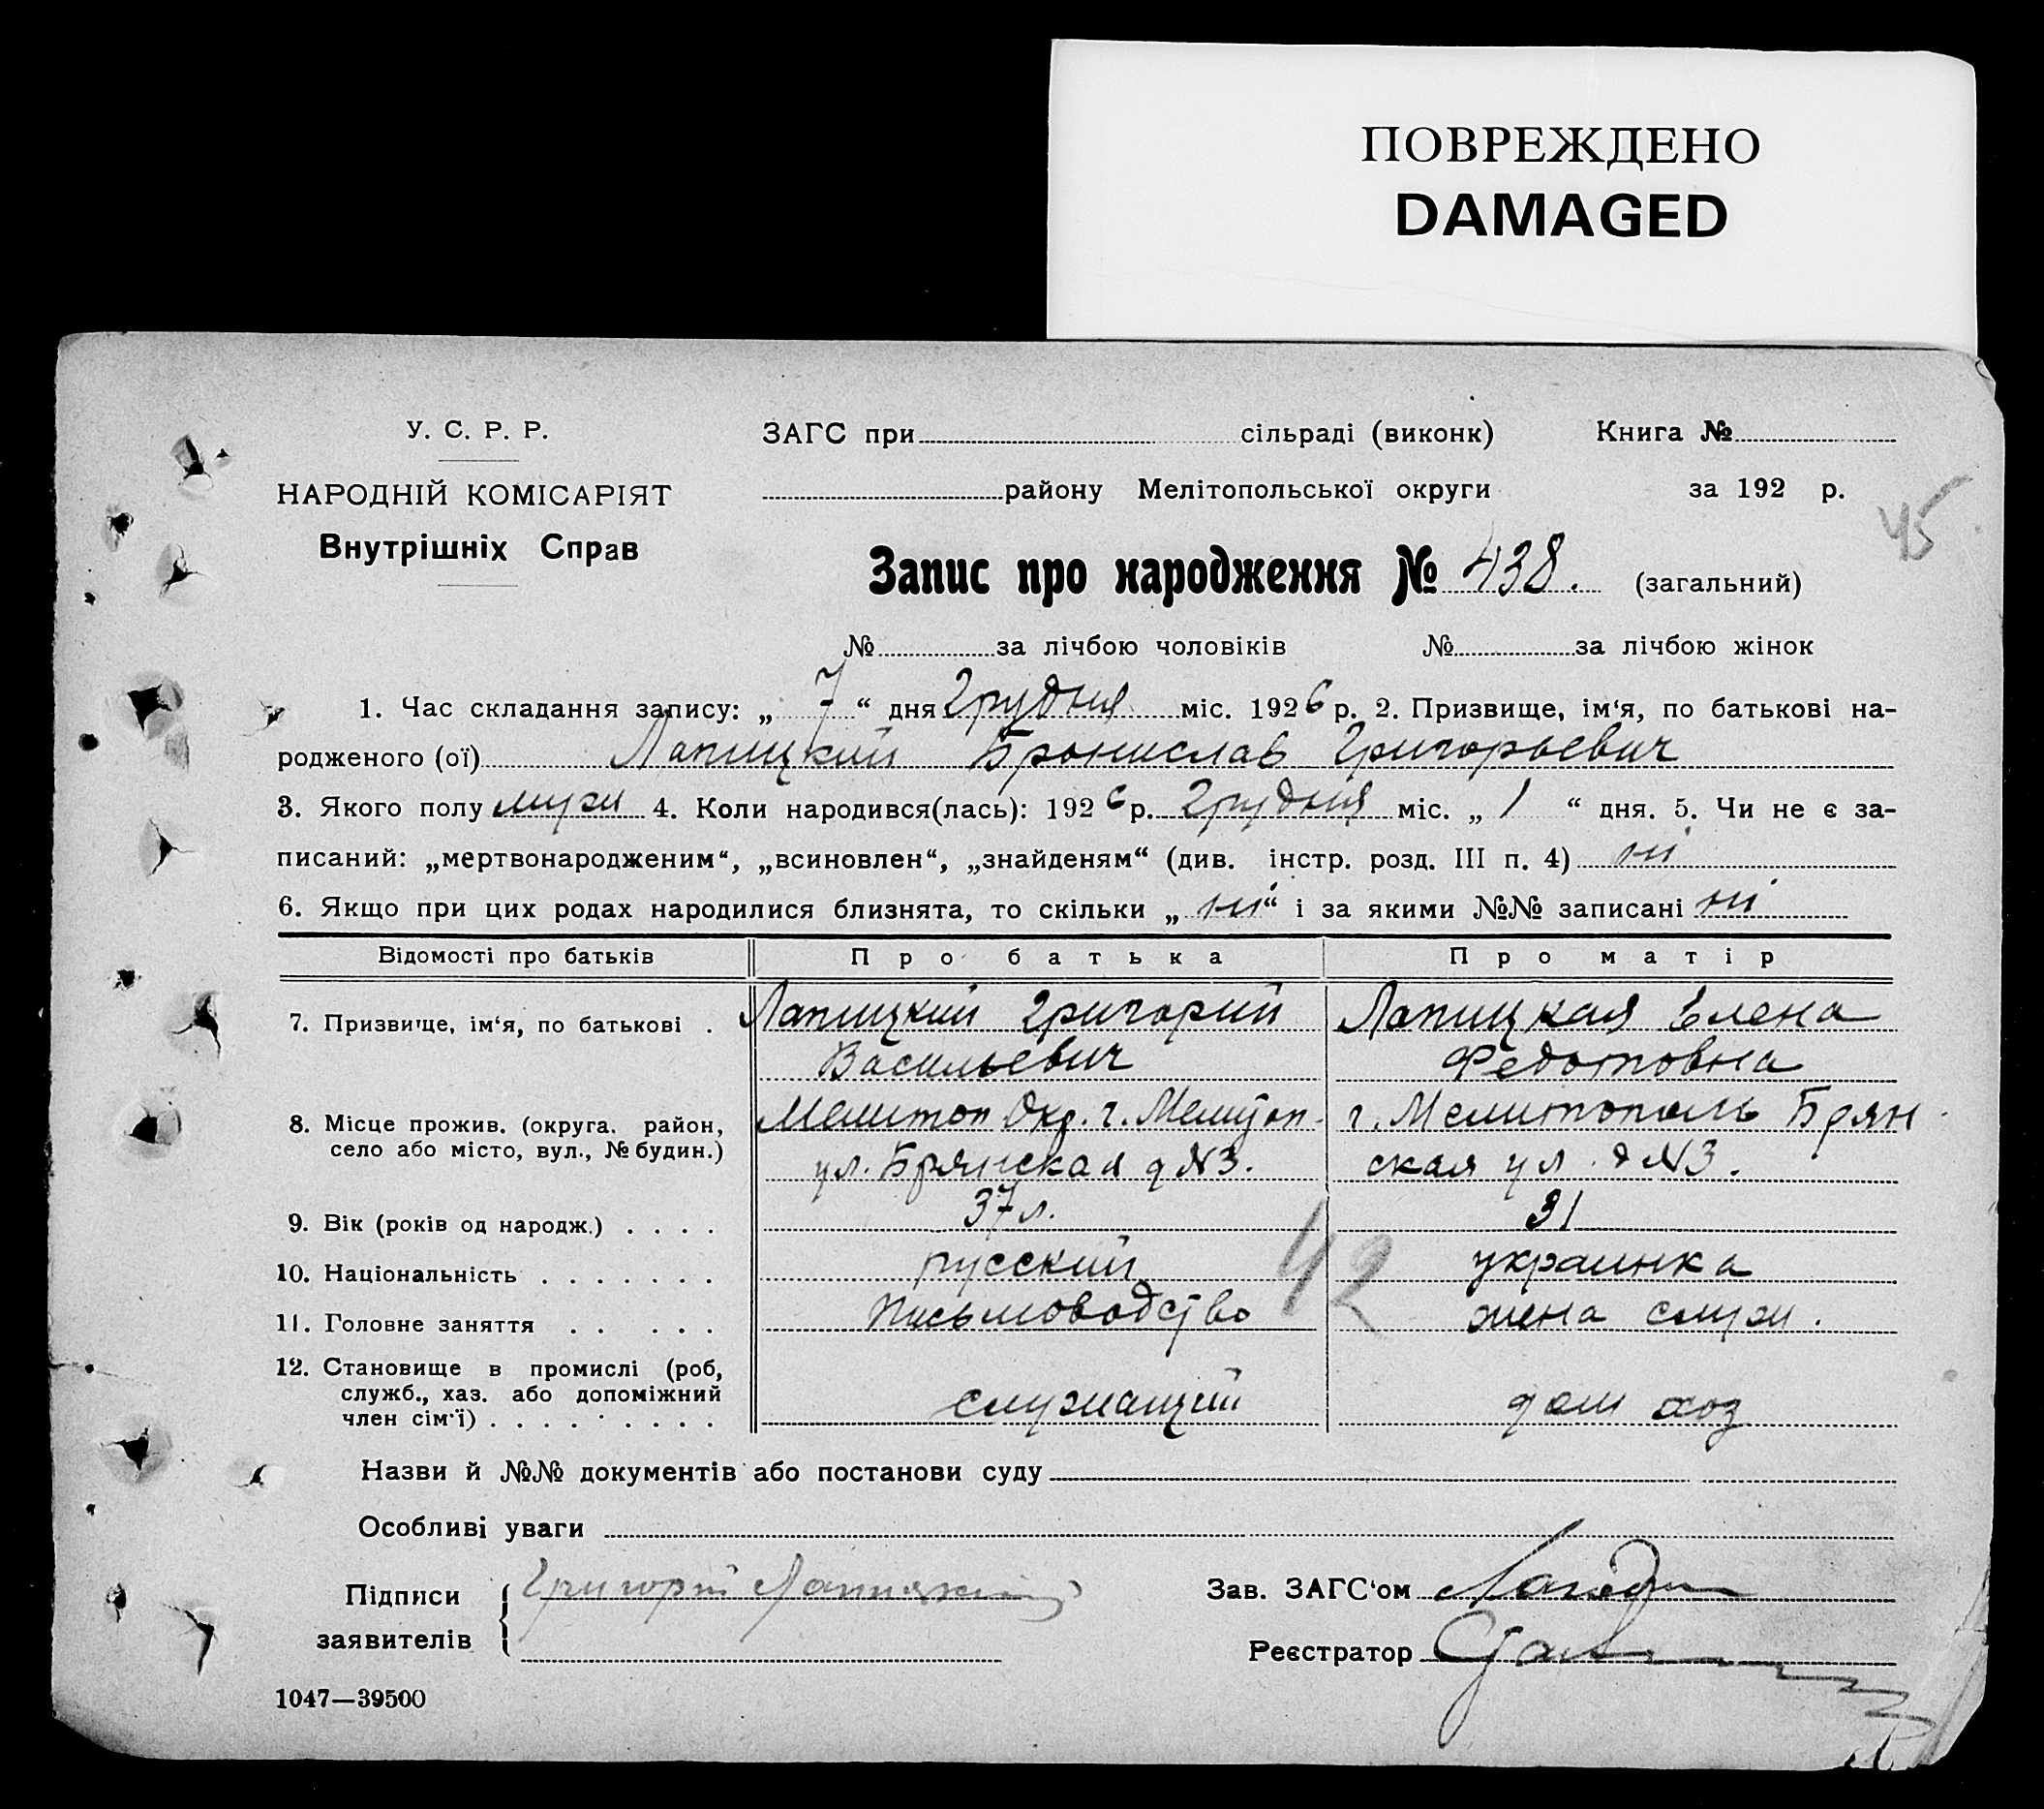 ПОВРЕЖДЕНО
DAMAGED
У. С. Р. Р.
НАРОДНІЙ КОМІСАРІЯТ
Внутрішніх Справ
ЗАГС при сільраді (виконк) Книга №
району Мелітопольської округи за 192 р.
45
Запис про народження № 438. (загальний)
№ за лічбою чоловіків № за лічбою жінок
1. Час складання запису: „ 7 “ дня Грудня міс. 1926 р. 2. Призвище, ім‘я, по батькові на-
родженого (ої) Лапицкий Бронислав Григорьевич
3. Якого полу мужи 4. Коли народився(лась): 1926 р. Грудня міс. „ 1 “ дня. 5. Чи не є за-
писаний: „мертвонародженим“, „всиновлен“, „знайденям“ (див. інстр. розд. III п. 4) ні
6. Якщо при цих родах народилися близнята, то скільки „ ні “ і за якими №№ записані ні
Відомості про батьків Про батька Про матір
7. Призвище, ім‘я, по батькові . Лапицкий Григорий Лапицкая Елена
Васильевич Федотовна
8. Місце прожив. (округа. район, село або місто, вул., № будин.) Мелитоп Окр. г. Мелитоп. г. Мелитополь Брян
ул. Брянская д N3. ская ул. д N3.
9. Вік (років од народж.) . . . . 37 л. 31
10. Національність . . . . . . . русский украинка
42
11. Головне заняття . . . . . Письмоводство жена служ.
12. Становище в промислі (роб,
служб., хаз. або допоміжний
член сім‘ї) . . . . . . . . . служащий дом хоз
Назви й №№ документів або постанови суду
Особливі уваги
Підписи заявителів Григорий Лапицкий
Зав. ЗАГС‘ом
Реєстратор
1047—39500